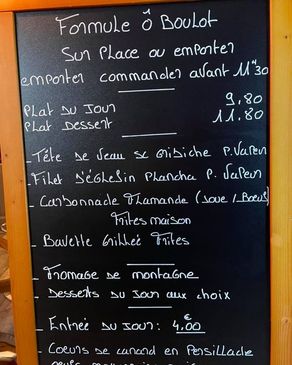 Formule Ô Boulot
Sur Place ou emporter
emporter commander avant 11H30
Plat du Jour 9,80
Plat Dessert 11.80
- Tête de Veau sc Gribiche P. Vapeur
- Filet D'Églefin Plancha P. Vapeur
- Carbonnade Flamande (Joue / Boeuf)
Frites maison
- Bavette Grillée Frites
- Fromage de montagne
- Desserts du Jour aux choix
- Entrée du Jour: 4,00 €
- Coeurs de canard en Persillade